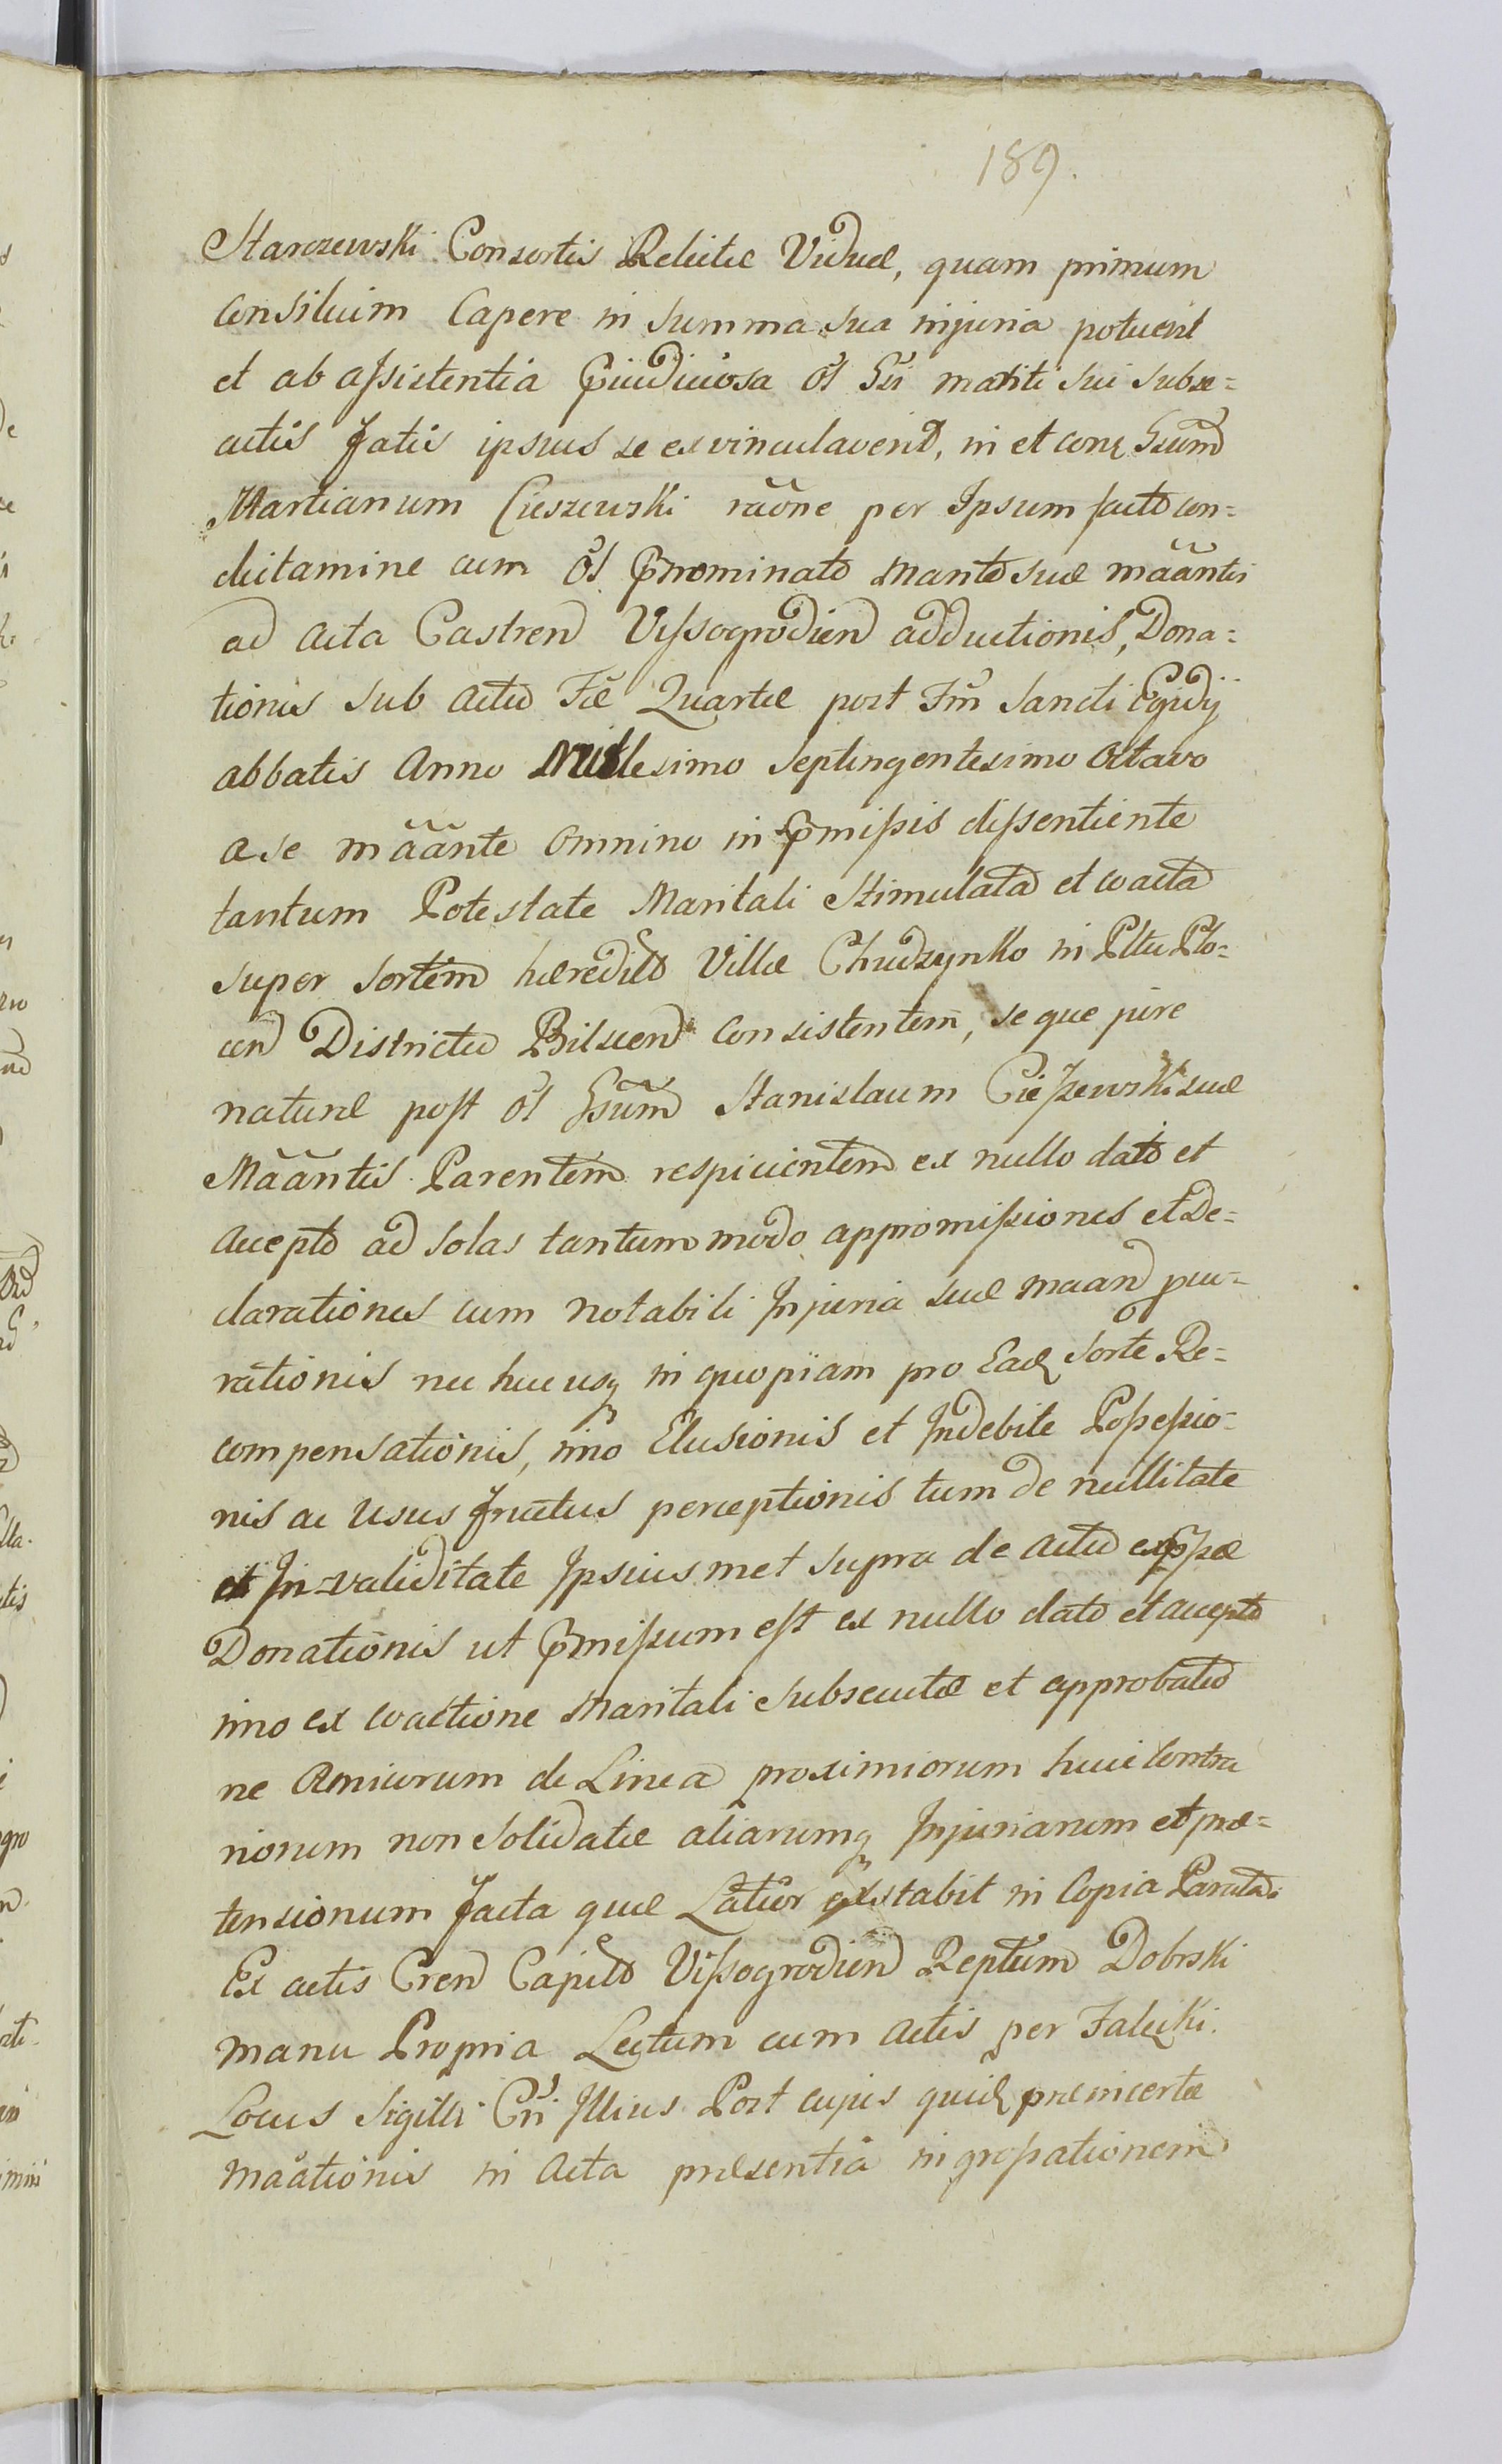 189.
Starczewski Consortis Relictæ Viduæ, quam primum
Consilium Capere in summa sua injuria potuerit
et ab assistentia p̃iudiciosa õl Gsi mariti sui subse=
cutis fatis ipsius se exvinculaverit, in et conq Gsum
Martianum Cieszewski rãone per Ipsum facto con=
dictamine cum õl p̃nominato Marito suæ mããntis
ad Acta Castren Vissogrodien adductionis, Dona=
tionis sub actu Fæ Quartæ post Fm̃ Sancti Egidij
abbatis Anno Millesimo Septingentesimo Octavo
a se mããnte omnino in p̃missis dissentiente
tantum Potestate Maritali Stimulata et coacta
super sortem hæredito Villæ Chudzynko in Pltu Plo=
cen Districtu Bilscen Consistentem, seque jure
naturæ post õl Gsum Stanislaum Cieszewski suæ
Mããntis Parentem respicientem ex nullo dato et
accepto ad solas tantummodo appromissiones et De=
clarationes cum notabili Injuria suæ maan
rationis nec hucusq in quopiam pro Eadq sorte Re=
compensationis, imo Elusionis et Indebite Possessio=
nis ac Usus fructus perceptionis tum de nullitate
et Invaliditate Ipsiusmet supra de actu
Donationis ut p̃missum est ex nullo dato et accepto
imo ex coactione Maritali subsecutæ et approbatio
ne Amicorum de Linea proximiorum huic contra
riorum non solidatæ aliarumq Injuriarum et præ=
tensionum facta quæ Latior extabit in Copia Parata.
Ex actis Cren Capito Vissogrodien Reptum Dobrski
manu Propria Lectum cum Actis per Falęcki.
Locus Sigilli Cri Illius Post cujus quid præinsertæ
maãtionis in Acta præsentia ingrossationem